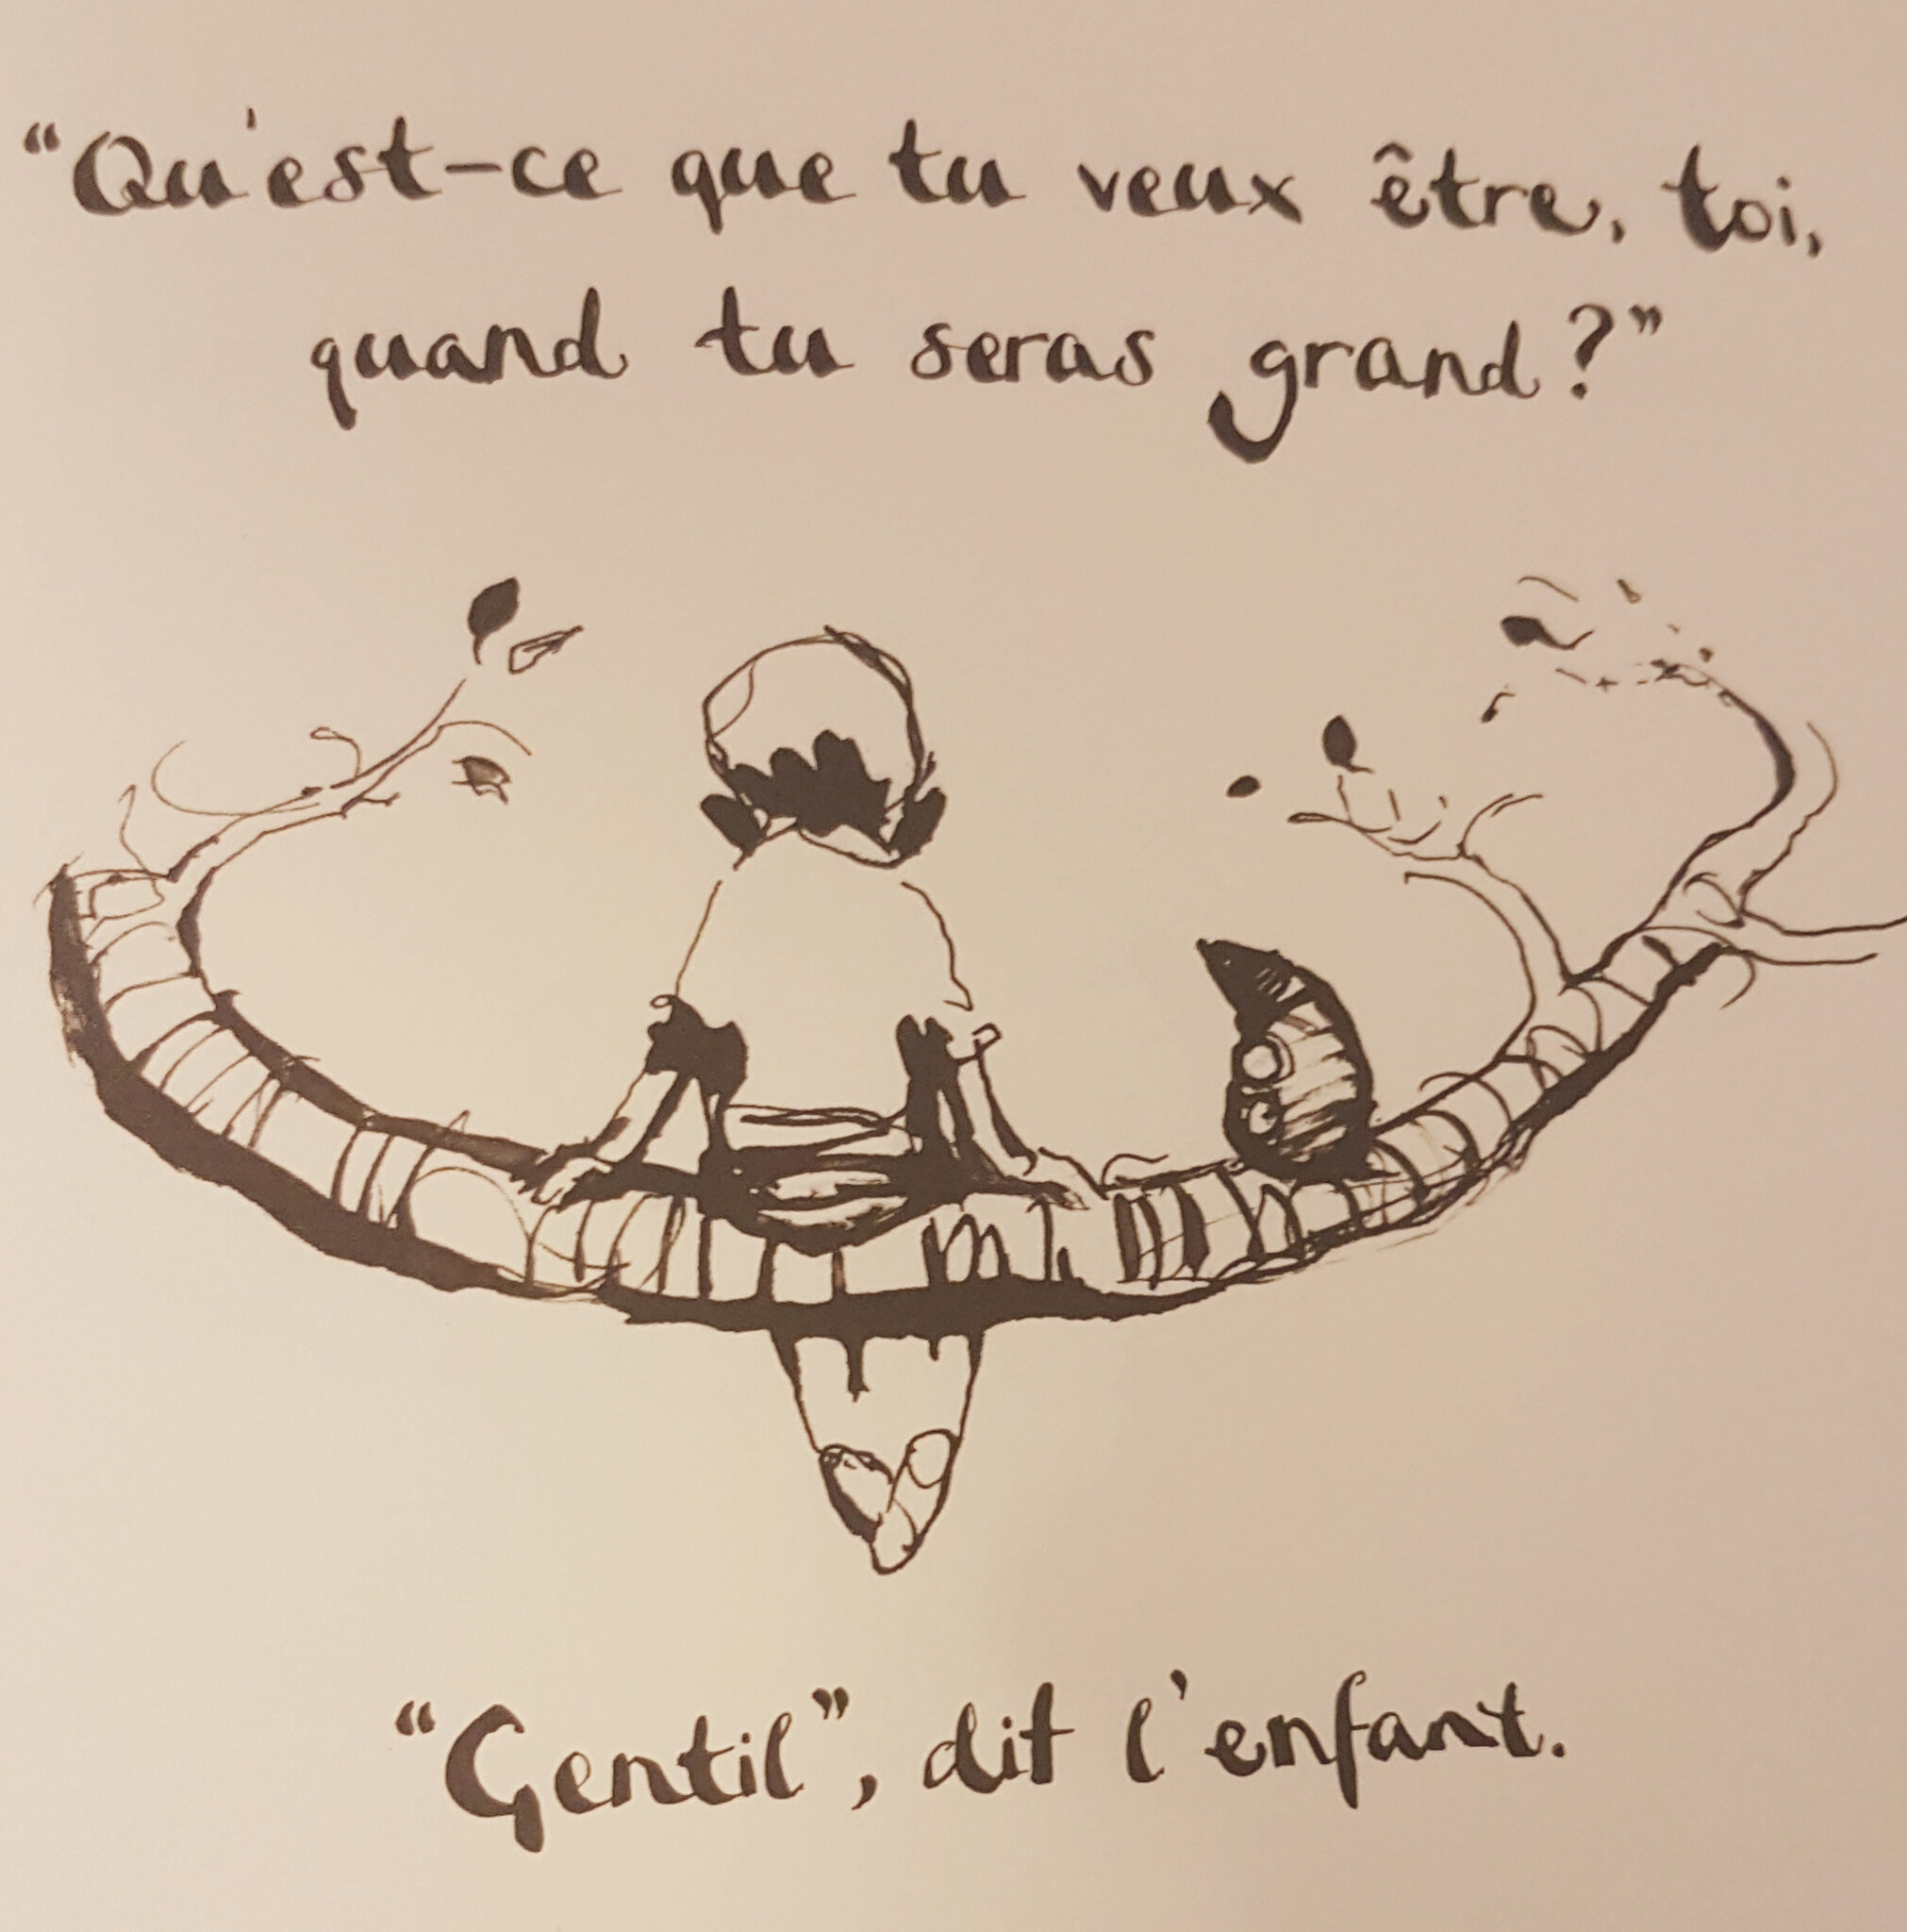 “Qu'est-ce que tu veux être, toi,
quand tu seras grand ?”
“Gentil”, dit l'enfant.